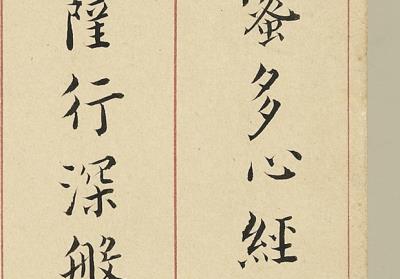 蜜多心經
薩行深般